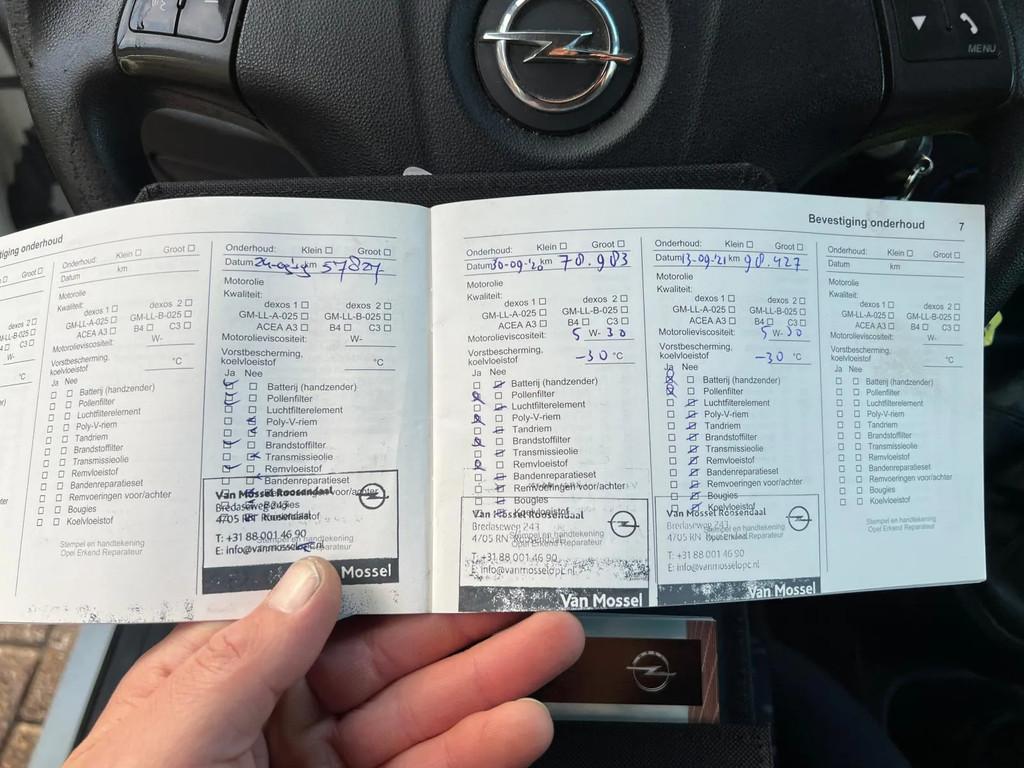 MENU
tiging onderhoud
Groot ☐
dexos 2 ☐
L-B-025 ☐
C3 ☐
W-
°C
Klein ☐ Groot ☐
Datum km
Motorolie
Kwaliteit:
dexos 1 ☐ dexos 2 ☐
GM-LL-A-025 ☐ GM-LL-B-025 ☐
ACEA A3 ☐ B4 ☐ C3 ☐
Motorolieviscositeit: W-
Vorstbescherming,
koelvloeistof °C
Ja Nee
☐ ☐ Batterij (handzender)
☐ ☐ Pollenfilter
☐ ☐ Luchtfilterelement
☐ ☐ Poly-V-riem
☐ ☐ Tandriem
☐ ☐ Brandstoffilter
☐ ☐ Transmissieolie
☐ ☐ Remvloeistof
☐ ☐ Bandenreparatieset
☐ ☐ Remvoeringen voor/achter
☐ ☐ Bougies
☐ ☐ Koelvloeistof
Stempel en handtekening
Opel Erkend Reparateur
Onderhoud: Klein ☐ Groot ☐
Datum km 57827
Motorolie
Kwaliteit:
dexos 1 ☐ dexos 2 ☐
GM-LL-A-025 ☐ GM-LL-B-025 ☐
ACEA A3 ☐ B4 ☐ C3 ☐
Motorolieviscositeit: W-
Vorstbescherming,
koelvloeistof °C
Ja Nee
Batterij (handzender)
Pollenfilter
Luchtfilterelement
Poly-V-riem
Tandriem
Brandstoffilter
Transmissieolie
Remvloeistof
Bandenreparatieset
voor/achter
Van Mossel Roosendaal
Bredaseweg 243
4705 RN
T: +31 88 001 46 90
E: info@vanmosselopel.nl
Mossel
Onderhoud: Klein ☐ Groot ☐
Datum 30-09-'20 km 78.983
Motorolie
Kwaliteit:
dexos 1 ☐ dexos 2 ☐
GM-LL-A-025 ☐ GM-LL-B-025 ☐
ACEA A3 ☐ B4 ☐ C3 ☐
Motorolieviscositeit: 5 W- 30
Vorstbescherming,
koelvloeistof -30 °C
Ja Nee
Batterij (handzender)
Pollenfilter
Luchtfilterelement
Poly-V-riem
Tandriem
Brandstoffilter
Transmissieolie
Remvloeistof
Bandenreparatieset
Remvoeringen voor/achter
Bougies
Koelvloeistof
Van Mossel Roosendaal
Bredaseweg 243
4705 RN Roosendaal
Stempel en handtekening
Opel Erkend Reparateur
T: +31 88 001 46 90
E: info@vanmosselopel.nl
Van Mossel
Bevestiging onderhoud 7
Onderhoud: Klein ☐ Groot ☐
Datum 13-09-'21 km 98.427
Motorolie
Kwaliteit:
dexos 1 ☐ dexos 2 ☐
GM-LL-A-025 ☐ GM-LL-B-025 ☐
ACEA A3 ☐ B4 ☐ C3 ☐
Motorolieviscositeit: 5 W- 30
Vorstbescherming,
koelvloeistof -30 °C
Ja Nee
Batterij (handzender)
Pollenfilter
Luchtfilterelement
Poly-V-riem
Tandriem
Brandstoffilter
Transmissieolie
Remvloeistof
Bandenreparatieset
Remvoeringen voor/achter
Bougies
Koelvloeistof
Van Mossel Roosendaal
Bredaseweg 243
4705 RN
Stempel en handtekening
Opel Erkend Reparateur
T: +31 88 001 46 90
E: info@vanmosselopel.nl
Van Mossel
Onderhoud: Klein ☐ Groot ☐
Datum km
Motorolie
Kwaliteit:
dexos 1 ☐ dexos 2 ☐
GM-LL-A-025 ☐ GM-LL-B-025 ☐
ACEA A3 ☐ B4 ☐ C3 ☐
Motorolieviscositeit: W-
Vorstbescherming,
koelvloeistof °C
Ja Nee
☐ ☐ Batterij (handzender)
☐ ☐ Pollenfilter
☐ ☐ Luchtfilterelement
☐ ☐ Poly-V-riem
☐ ☐ Tandriem
☐ ☐ Brandstoffilter
☐ ☐ Transmissieolie
☐ ☐ Remvloeistof
☐ ☐ Bandenreparatieset
☐ ☐ Remvoeringen voor/achter
☐ ☐ Bougies
☐ ☐ Koelvloeistof
Stempel en handtekening
Opel Erkend Reparateur